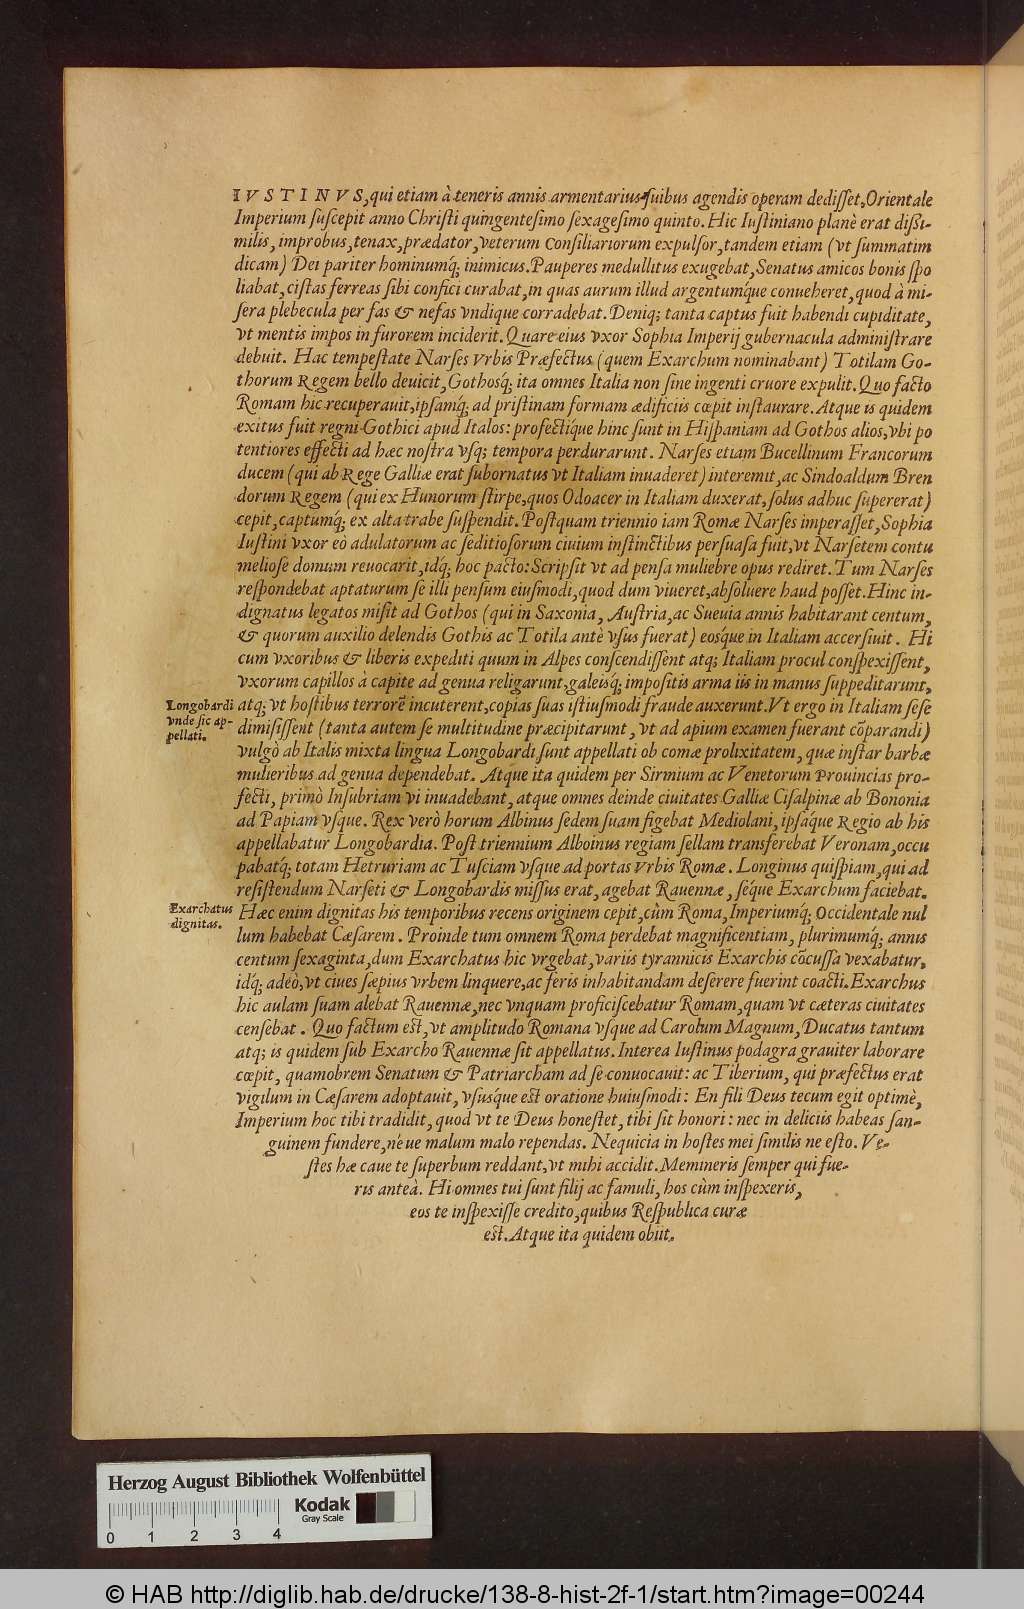 IVSTINVS, qui etiam à teneris annis armentarius suibus agendis operam dedisset, Orientale
Imperium suscepit anno Christi quingentesimo sexagesimo quinto. Hic Iustiniano planè erat dißi-
milis, improbus, tenax, prædator, veterum consiliariorum expulsor, tandem etiam (vt summatim
dicam) Dei pariter hominumq́; inimicus. Pauperes medullitus exugebat, Senatus amicos bonis spo
liabat, cistas ferreas sibi confici curabat, in quas aurum illud argentumq́ue conueheret, quod à mi-
sera plebecula per fas & nefas vndique corradebat. Deniq; tanta captus fuit habendi cupiditate,
vt mentis impos in furorem inciderit. Quare eius vxor Sophia Imperij gubernacula administrare
debuit. Hac tempestate Narses Vrbis Præfectus (quem Exarchum nominabant) Totilam Go-
thorum Regem bello deuicit, Gothosq́; ita omnes Italia non sine ingenti cruore expulit. Quo facto
Romam hic recuperauit, ipsamq́; ad pristinam formam ædificiis cœpit instaurare. Atque is quidem
exitus fuit regni Gothici apud Italos: profectíque hinc sunt in Hispaniam ad Gothos alios, vbi po
tentiores effecti ad hæc nostra vsq; tempora perdurarunt. Narses etiam Bucellinum Francorum
ducem (qui ab Rege Galliæ erat subornatus vt Italiam inuaderet) interemit, ac Sindoaldum Bren
dorum Regem (qui ex Hunorum stirpe, quos Odoacer in Italiam duxerat, solus adhuc supererat)
cepit, captumq́; ex alta trabe suspendit. Postquam triennio iam Romæ Narses imperasset, Sophia
Iustini vxor eò adulatorum ac seditiosorum ciuium instinctibus persuasa fuit, vt Narsetem contu
meliose domum reuocarit, idq́; hoc pacto: Scripsit vt ad pensa muliebre opus rediret. Tum Narses
respondebat aptaturum se illi pensum eiusmodi, quod dum viueret, absoluere haud posset. Hinc in-
dignatus legatos misit ad Gothos (qui in Saxonia, Austria, ac Sueuia annis habitarant centum,
& quorum auxilio delendis Gothis ac Totila antè vsus fuerat) eosq́ue in Italiam accersiuit. Hi
cum vxoribus & liberis expediti quum in Alpes conscendissent atq; Italiam procul conspexissent,
vxorum capillos à capite ad genua religarunt, galeisq́; impositis arma iis in manus suppeditarunt,
Longobardi
vnde sic ap-
pellati.
atq; vt hostibus terrorẽ incuterent, copias suas istiusmodi fraude auxerunt. Vt ergo in Italiam sese
dimisissent (tanta autem se multitudine præcipitarunt, vt ad apium examen fuerant cõparandi)
vulgò ab Italis mixta lingua Longobardi sunt appellati ob comæ prolixitatem, quæ instar barbæ
mulieribus ad genua dependebat. Atque ita quidem per Sirmium ac Venetorum Prouincias pro-
fecti, primò Insubriam vi inuadebant, atque omnes deinde ciuitates Galliæ Cisalpinæ ab Bononia
ad Papiam vsque. Rex verò horum Albinus sedem suam figebat Mediolani, ipsáque Regio ab his
appellabatur Longobardia. Post triennium Alboinus regiam sellam transferebat Veronam, occu
pabatq́; totam Hetruriam ac Tusciam vsque ad portas Vrbis Romæ. Longinus quispiam, qui ad
resistendum Narseti & Longobardis missus erat, agebat Rauennæ, séque Exarchum faciebat.
Exarchatus
dignitas.
Hæc enim dignitas his temporibus recens originem cepit, cùm Roma, Imperiumq́; Occidentale nul
lum habebat Cæsarem. Proinde tum omnem Roma perdebat magnificentiam, plurimumq́; annis
centum sexaginta, dum Exarchatus hic vrgebat, variis tyrannicis Exarchis cõcussa vexabatur,
idq́; adeò, vt ciues sæpius vrbem linquere, ac feris inhabitandam deserere fuerint coacti. Exarchus
hic aulam suam alebat Rauennæ, nec vnquam proficiscebatur Romam, quam vt cæteras ciuitates
censebat. Quo factum est, vt amplitudo Romana vsque ad Carolum Magnum, Ducatus tantum
atq; is quidem sub Exarcho Rauennæ sit appellatus. Interea Iustinus podagra grauiter laborare
cœpit, quamobrem Senatum & Patriarcham ad se conuocauit: ac Tiberium, qui præfectus erat
vigilum in Cæsarem adoptauit, vsusq́ue est oratione huiusmodi: En fili Deus tecum egit optimè,
Imperium hoc tibi tradidit, quod vt te Deus honestet, tibi sit honori: nec in deliciis habeas san-
guinem fundere, néue malum malo rependas. Nequicia in hostes mei similis ne esto. Ve-
stes hæ caue te superbum reddant, vt mihi accidit. Memineris semper qui fue-
ris anteà. Hi omnes tui sunt filij ac famuli, hos cùm inspexeris,
eos te inspexisse credito, quibus Respublica curæ
est. Atque ita quidem obiit.
Herzog August Bibliothek Wolfenbüttel
Kodak
Gray Scale
0 1 2 3 4
© HAB http://diglib.hab.de/drucke/138-8-hist-2f-1/start.htm?image=00244